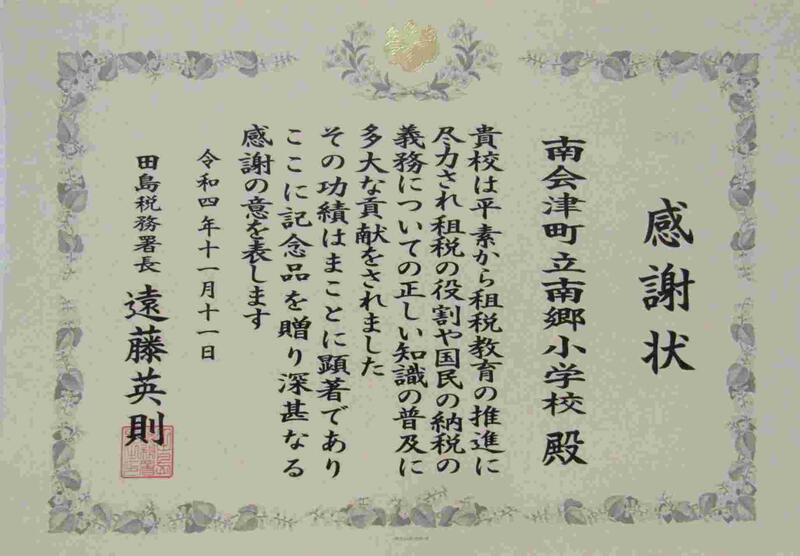 感謝状
南会津町立南郷小学校 殿
貴校は平素から租税教育の推進に
尽力され租税の役割や国民の納税の
義務についての正しい知識の普及に
多大な貢献をされました
その功績はまことに顕著であり
ここに記念品を贈り深甚なる
感謝の意を表します
令和四年十一月十一日
田島税務署長 遠藤英則